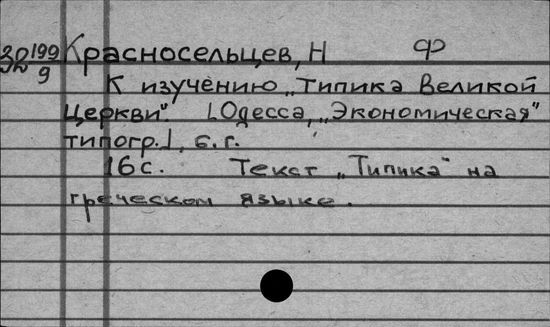 199/9 Красносельцев, Н ф
К изучению „Типика Великой
Церкви“ [Одесса, „Экономическая“
типогр.], б. г.
16 с. Текст „Типика“ на
греческом языке.